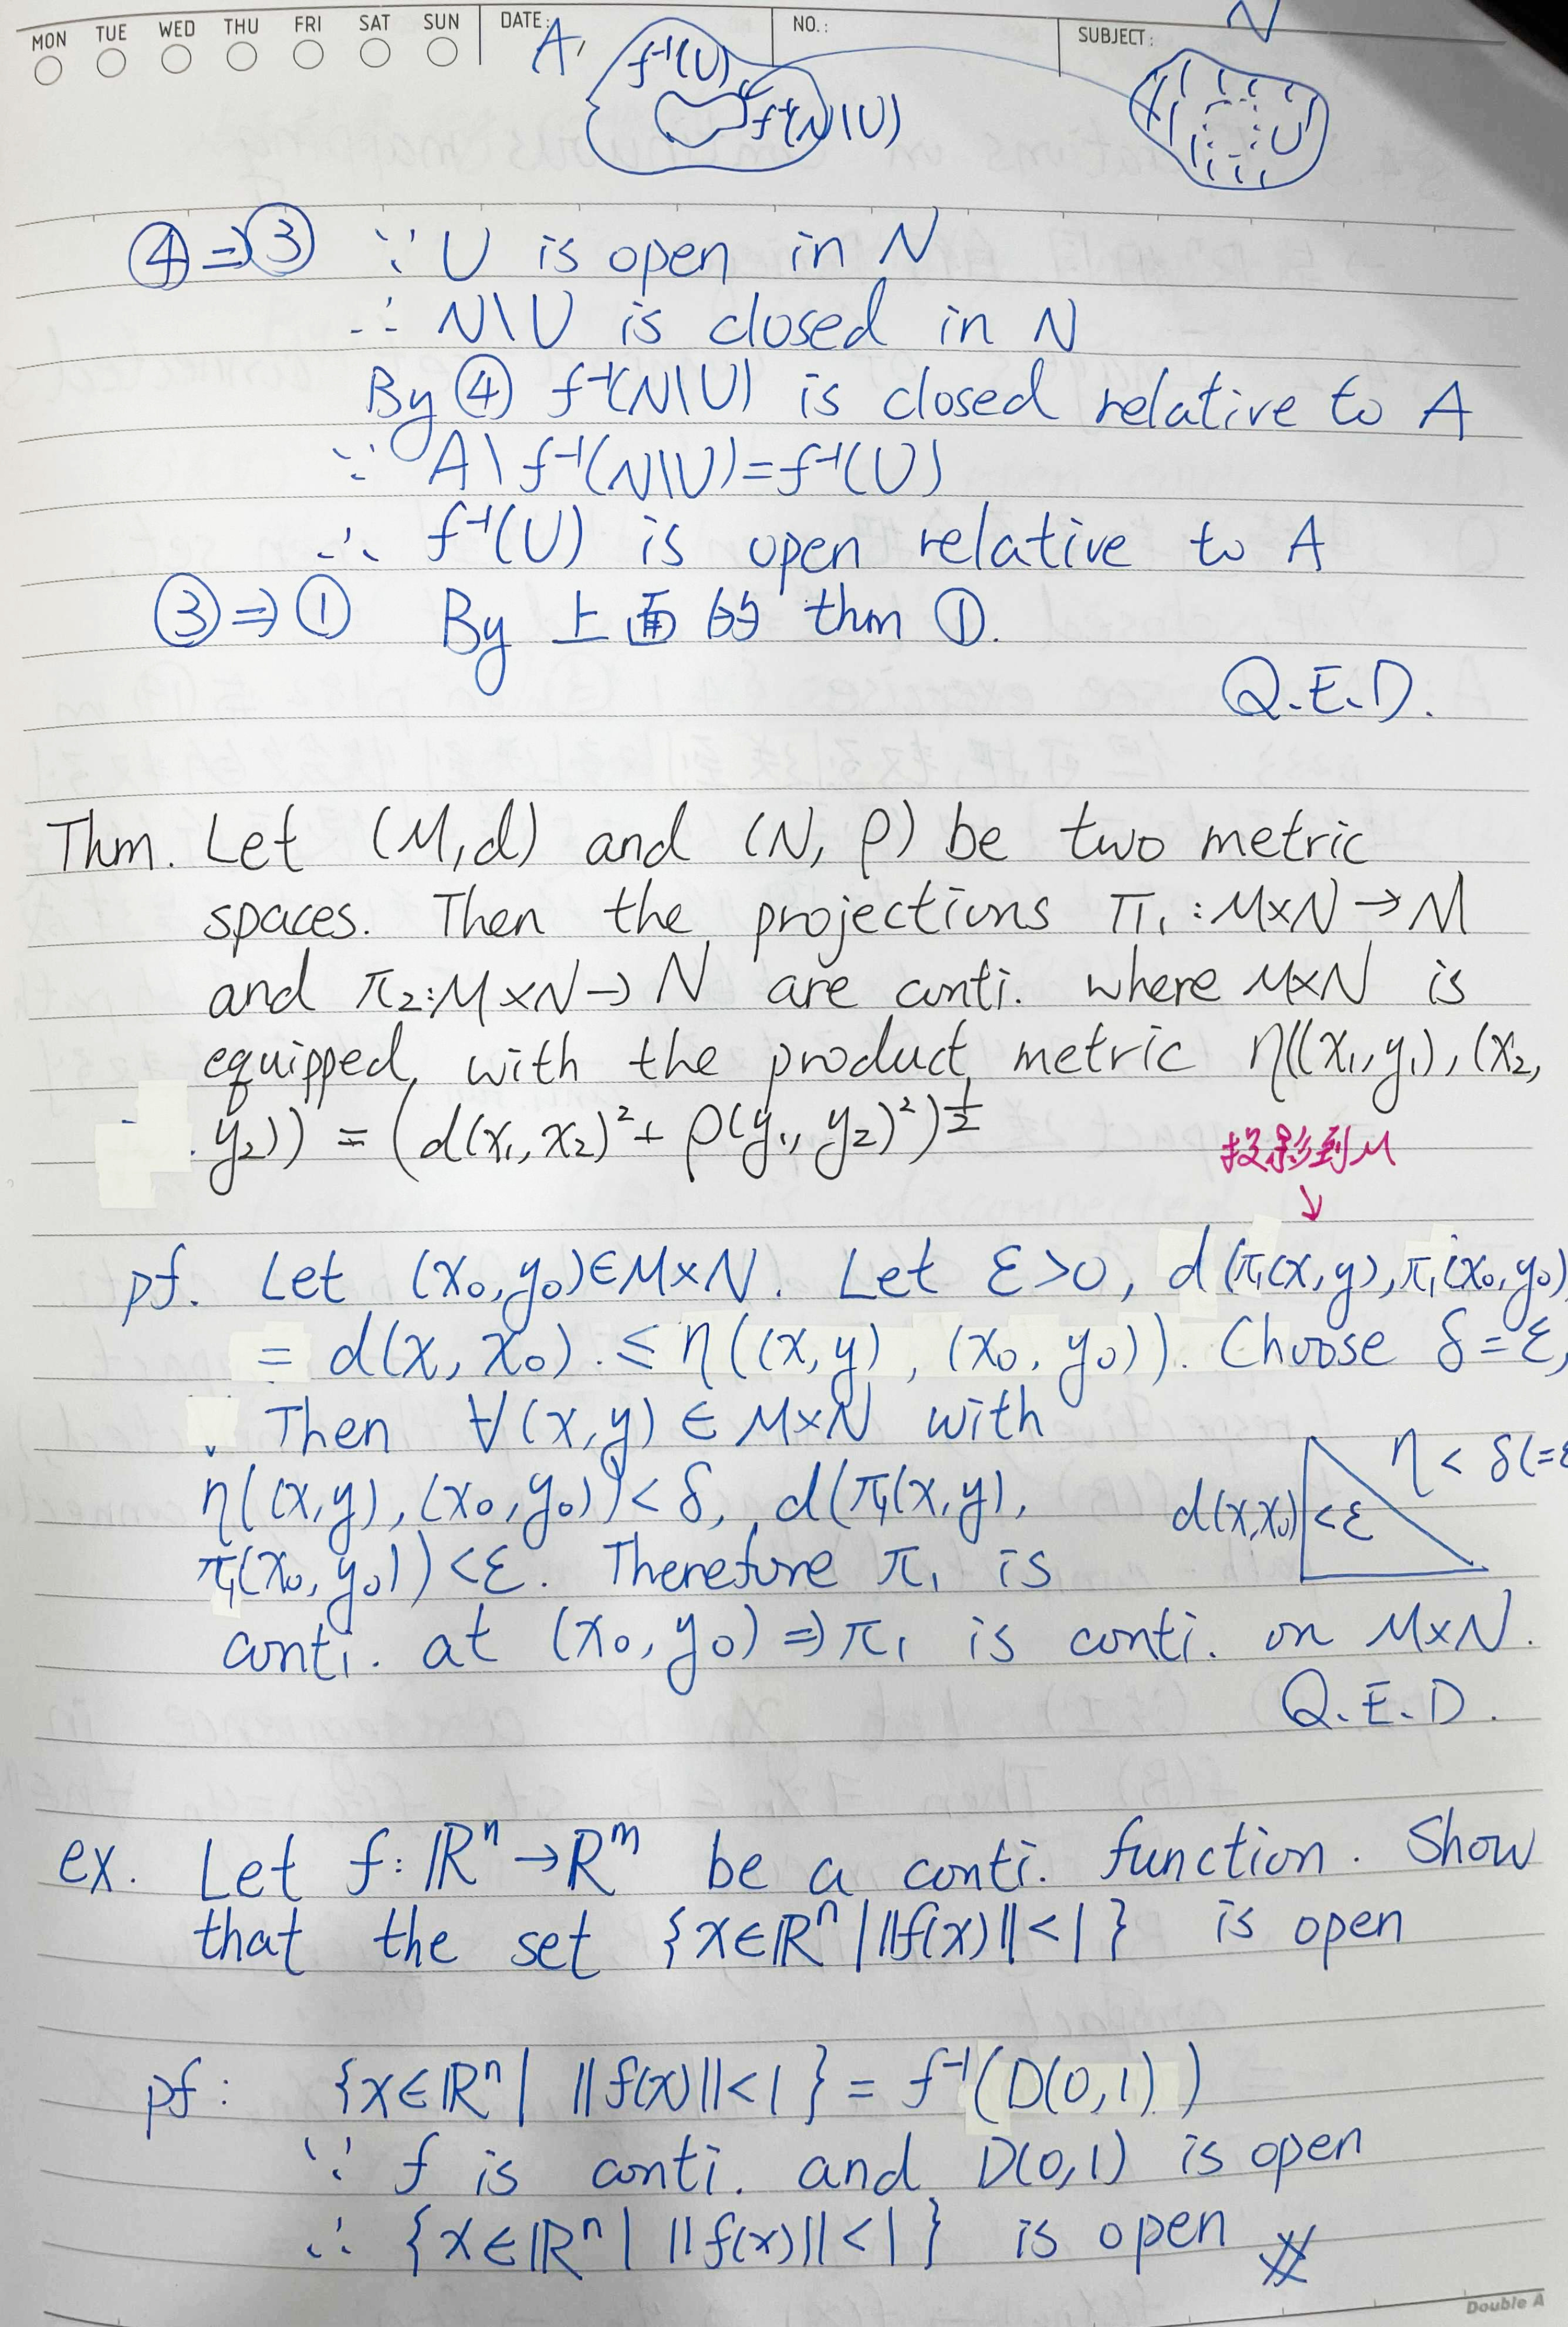 MON TUE WED THU FRI SAT SUN DATE: NO.: SUBJECT:
A N
f⁻¹(U)
f⁻¹(N\U) U
④⇒③ ∵ U is open in N
∴ N\U is closed in N
By ④ f⁻¹(N\U) is closed relative to A
∵ A\f⁻¹(N\U)=f⁻¹(U)
∴ f⁻¹(U) is open relative to A
③⇒① By 上面的 thm ①.
Q.E.D.
Thm. Let (M,d) and (N, ρ) be two metric
spaces. Then the projections π₁:M×N→M
and π₂:M×N→N are conti. where M×N is
equipped with the product metric η((x₁,y₁),(x₂,
y₂)) = (d(x₁,x₂)²+ρ(y₁,y₂)²)^½
投影到M
↓
pf. Let (x₀,y₀)∈M×N. Let ε>0, d(π₁(x,y),π₁(x₀,y₀)
= d(x,x₀) ≤ η((x,y),(x₀,y₀)). Choose δ=ε,
Then ∀(x,y)∈M×N with
η((x,y),(x₀,y₀))<δ, d(π₁(x,y),
π₁(x₀,y₀))<ε. Therefore π₁ is
η<δ(=ε
d(x,x₀) <ε
conti. at (x₀,y₀)⇒π₁ is conti. on M×N.
Q.E.D.
ex. Let f:ℝⁿ→ℝᵐ be a conti. function. Show
that the set {x∈ℝⁿ | ||f(x)||<1} is open
pf: {x∈ℝⁿ | ||f(x)||<1} = f⁻¹(D(0,1))
∵ f is conti. and D(0,1) is open
∴ {x∈ℝⁿ | ||f(x)||<1} is open #
Double A